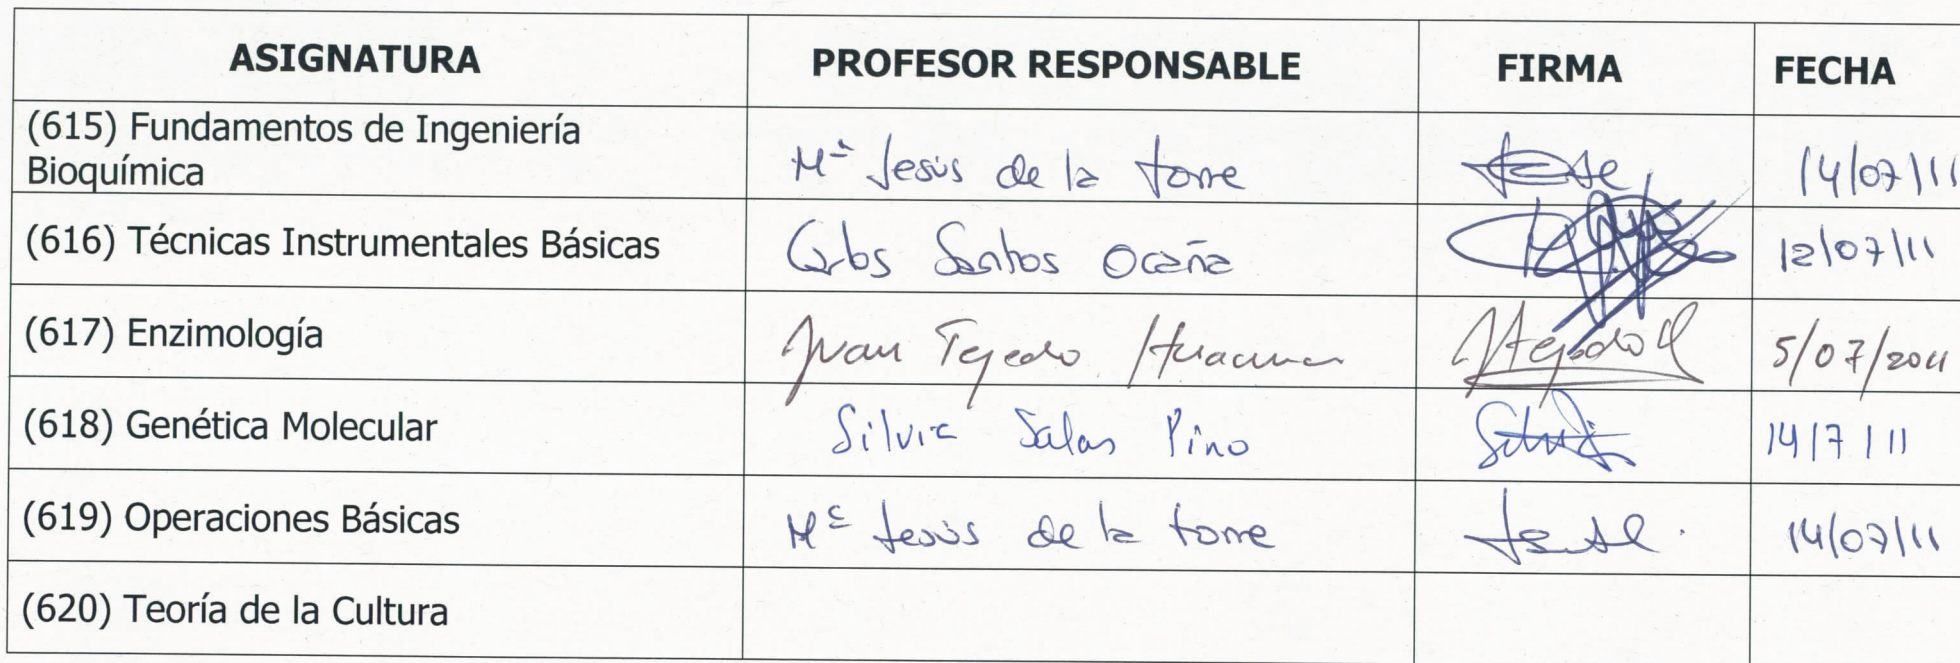 ASIGNATURA PROFESOR RESPONSABLE FIRMA FECHA
(615) Fundamentos de Ingeniería
Bioquímica Mª Jesús de la torre 14/07/11
(616) Técnicas Instrumentales Básicas Carlos Santos Ocaña 12/07/11
(617) Enzimología Juan Tejedo 5/07/2011
(618) Genética Molecular Silvia Salas Pino 14/7/11
(619) Operaciones Básicas Mª Jesús de la torre 14/07/11
(620) Teoría de la Cultura